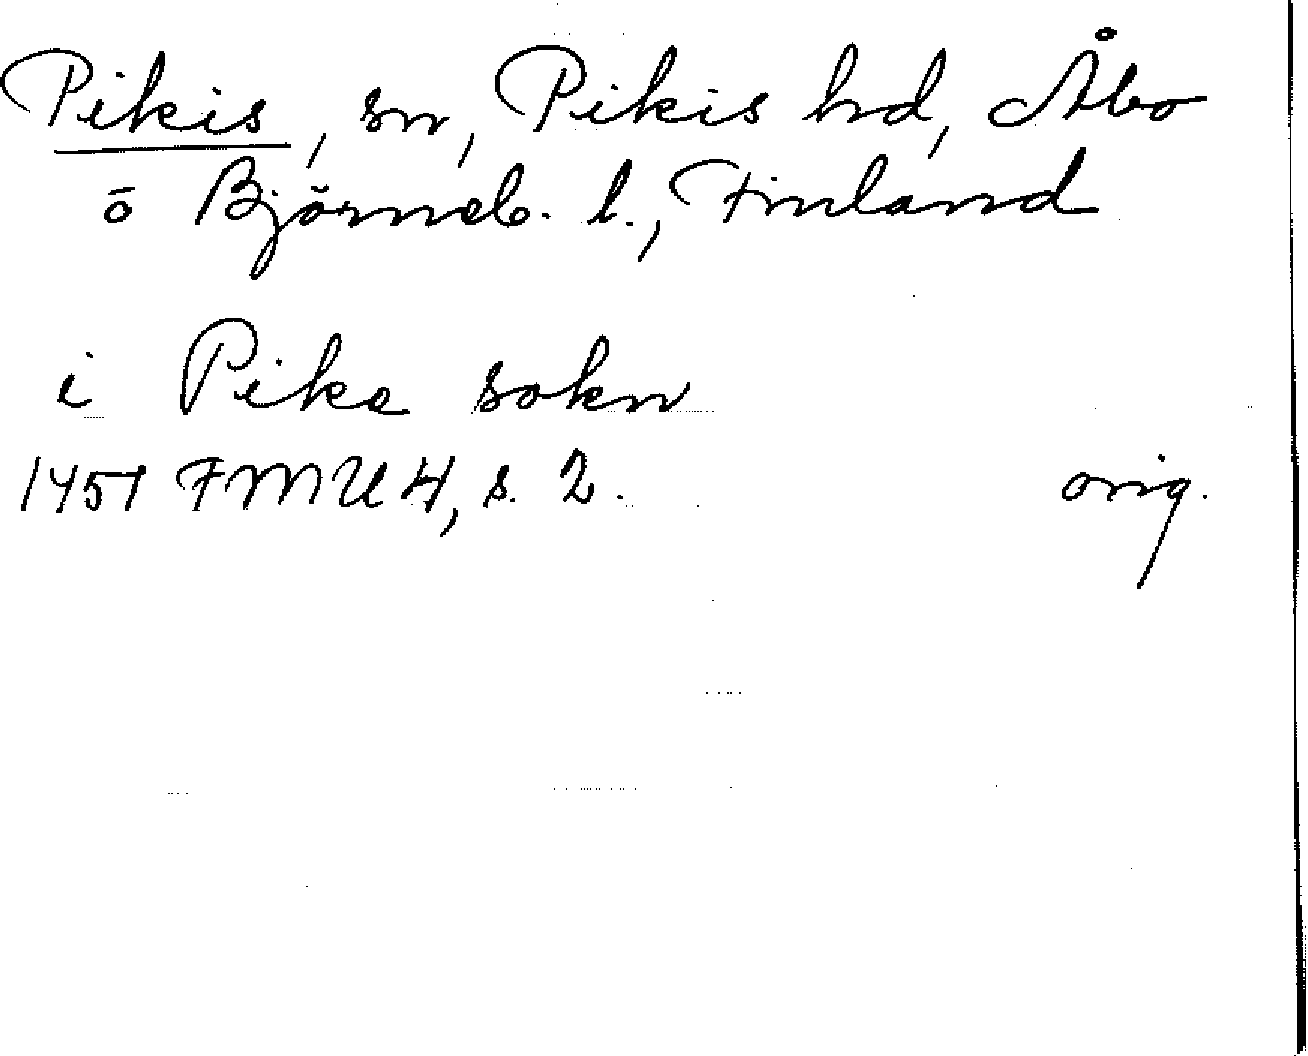 Pikis, sn, Pikis hd, Åbo
o Björneb. l., Finland
i Pike sokn
1457 FMU 4, s. 2. orig.